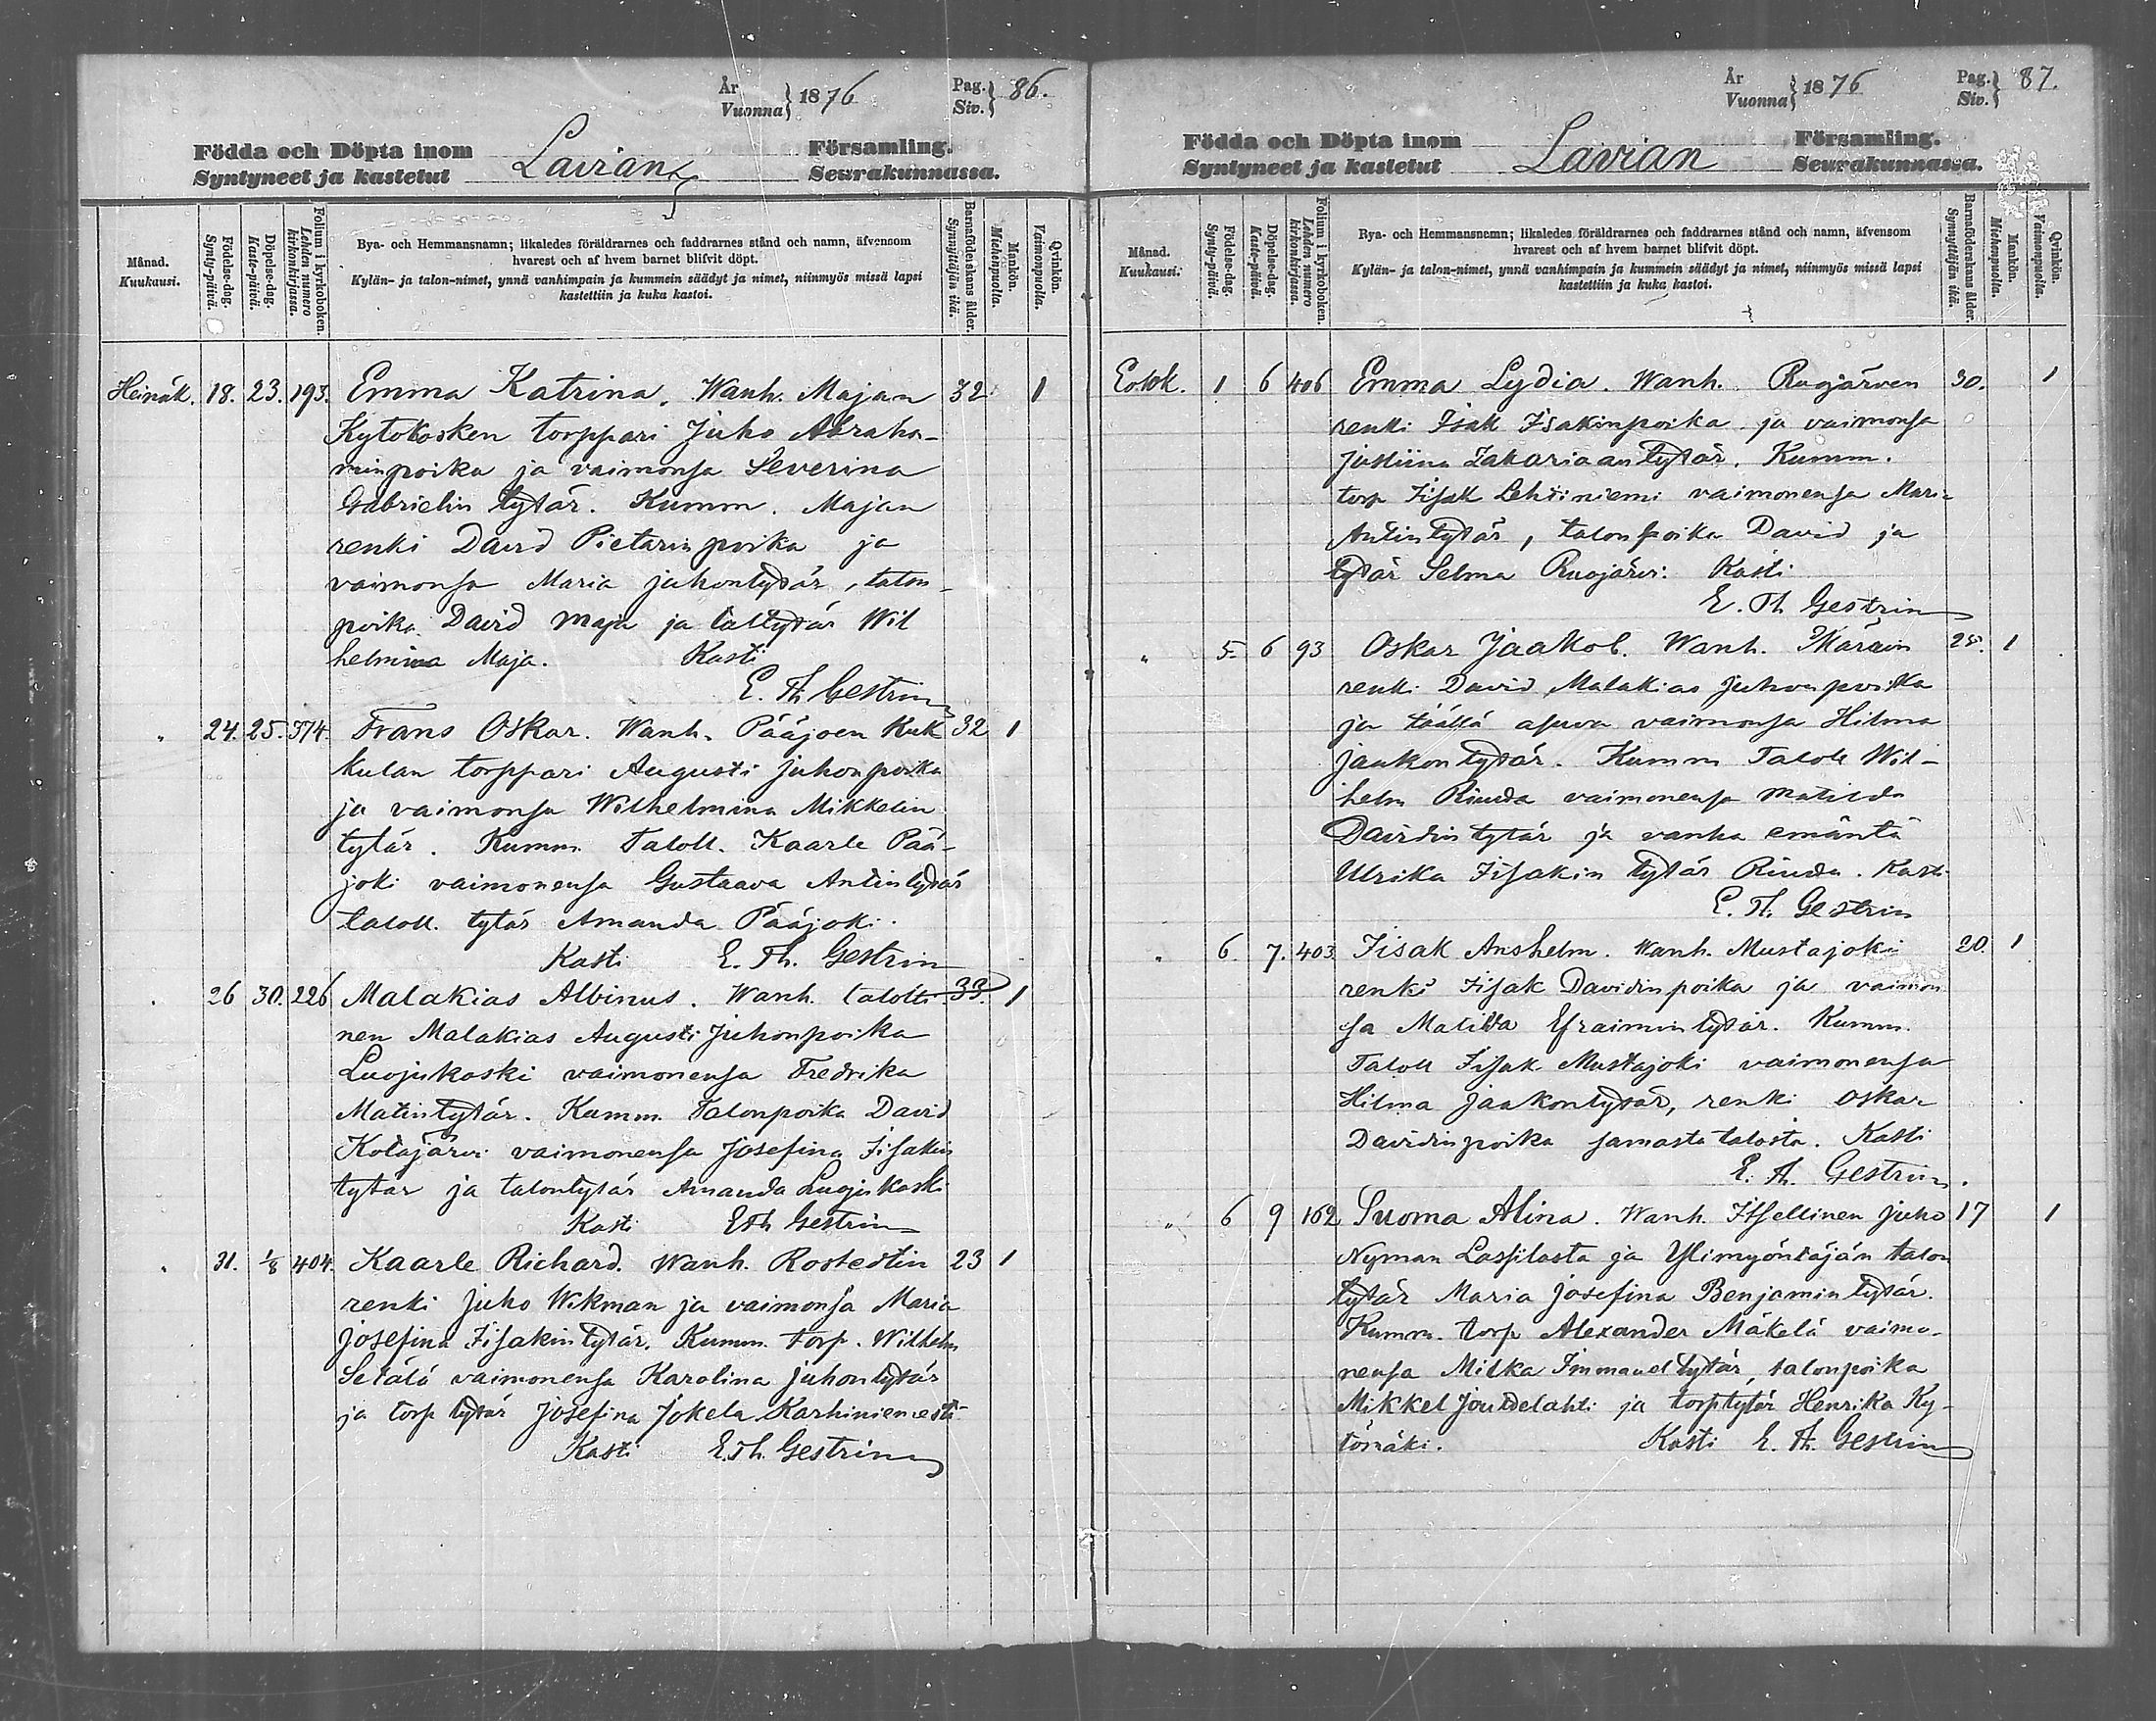 År
Vuonna } 1876
Pag.
Siv. } 86.
Födda och Döpta inom
Syntyneet ja kastetut
Lavian
Församling.
Seurakunnassa.
Månad.
Kuukausi.
Födelse-dag.
Synty-päivä.
Döpelse-dag.
Kaste-päivä.
Folium i kyrkoboken.
Lehden numero kirkonkirjassa.
Bya- och Hemmansnamn; likaledes föräldrarnes och faddrarnes stånd och namn, äfvensom
hvarest och af hvem barnet blifvit döpt.
Kylän- ja talon-nimet, ynnä vanhimpain ja kummein säädyt ja nimet, niinmyös missä lapsi
kastettiin ja kuka kastoi.
Barnaföderskans ålder.
Synnyttäjän ikä.
Mankön.
Miehenpuolia.
Qvinkön.
Vaimonpuolia.
Heinäk. 18. 23. 193. Emma Katrina. Wanh. Majan 32 1
Kytokosken torppari Juho Abraha-
minpoika ja vaimonsa Severina
Gabrielin tytär. Kumm. Majan
renki David Pietarinpoika ja
vaimonsa Maria Juhontytär, talon-
poika David Maja ja taltytär Wil
helmina Maja. Kasti
E. Th Gestrin
" 24. 25. 374. Frans Oskar. Wanh. Pääjoen Kuk 32 1
kulan torppari Augusti Juhonpoika
ja vaimonsa Wilhelmina Mikkelin
tytär. Kumm. Taloll. Kaarle Pää-
joki vaimonensa Gustaava Antintytär
taloll. tytär Amanda Pääjoki.
Kasti E. Th. Gestrin
" 26 30. 226 Malakias Albinus. Wanh. talolli 33. 1
nen Malakias Augusti Juhonpoika
Luojukoski vaimonensa Fredrika
Matintytär. Kumm. Talonpoika David
Kotajärvi vaimonensa Josefina Iisakin
tytär ja talontytär Amanda Luojukoski
Kasti E Th Gestrin
" 31. 1/8 404. Kaarle Richard. Wanh. Rostedtin 23 1
renki Juho Wikman ja vaimonsa Maria
Josefina Iisakintytär. Kumm. torp. Wilhelm
Setälä vaimonensa Karolina Juhontytär
ja torp tytär Josefina Jokela Karhiniemestä
Kasti E. Th. Gestrin
År
Vuonna } 1876
Pag.
Siv. } 87.
Födda och Döpta inom
Syntyneet ja kastetut
Lavian
Församling.
Seurakunnassa.
Månad.
Kuukausi.
Födelse-dag.
Synty-päivä.
Döpelse-dag.
Kaste-päivä.
Folium i kyrkoboken.
Lehden numero kirkonkirjassa.
Bya- och Hemmansnemn; likaledes föräldrarnes och faddrarnes stånd och namn, äfvensom
hvarest och af hvem barnet blifvit döpt.
Kylän- ja talon-nimet, ynnä vanhimpain ja kummein säädyt ja nimet, niinmyös missä lapsi
kastettiin ja kuka kastoi.
Barnaföderskans ålder.
Synnyttäjän ikä.
Mankön.
Miehenpuolia.
Qvinkön.
Vaimonpuolia.
Eolok. 1 6 406 Emma Lydia. Wanh. Ruojärven 30. 1
renki Isak Isakinpoika ja vaimonsa
Justiina Zakariaantytär. Kumm.
torp Iisak Lehtiniemi vaimonensa Maria
Antintytär, talonpoika David ja
tytär Selma Ruojärvi. Kasti
E. Th Gestrin
" 5. 6 93 Oskar Jaakob. Wanh. 25. 1
renki David Malakias Juhonpoika
ja täällä asuva vaimonsa Hilma
Jaakontytär. Kumm Taloll Wil-
helm Riuda vaimonensa Matilda
Davidintytär ja vanha emäntä
Ulrika Iisakin tytär Riuda. Kasti
E. Th. Gestrin
" 6. 7. 403 Iisak Anshelm. Wanh. Mustajoki 20. 1
renki Iisak Davidinpoika ja vaimon
sa Matilda Efraimintytär. Kumm.
Taloll Iisak Mustajoki vaimonensa
Hilma Jaakontytär, renki Oskar
Davidinpoika samasta talosta. Kasti
E. Th. Gestrin.
" 6 9 162 Suoma Alina. Wanh. Itsellinen Juho 17 1
Nyman Lassilasta ja Ylimyöntäjän talon
tytär Maria Josefina Benjamintytär.
Kumm. torp Alexander Mäkelä vaimo-
nensa Milka Immaneltytär, talonpoika
Mikkel Joutdelahti ja torptytär Henrika Ky-
tömäki. Kasti E. Th. Gestrin